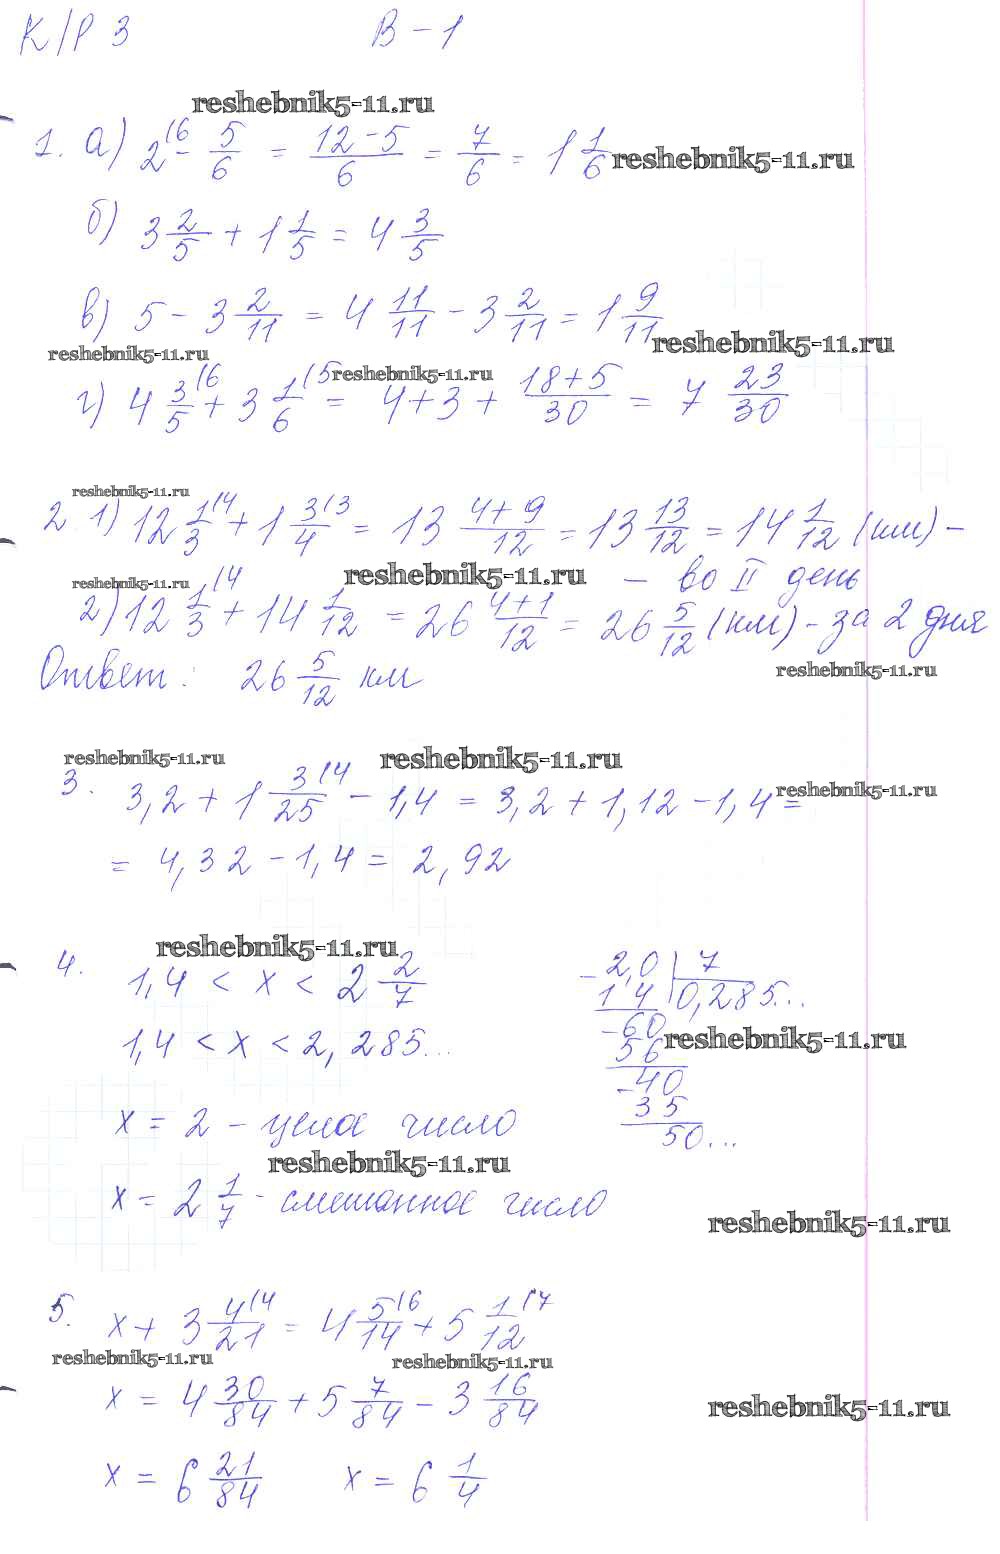 К/Р 3 В-1
reshebnik5-11.ru
1. а) 2(6 - 5/6 = (12-5)/6 = 7/6 = 1 1/6 reshebnik5-11.ru
б) 3 2/5 + 1 1/5 = 4 3/5
в) 5 - 3 2/11 = 4 11/11 - 3 2/11 = 1 9/11 reshebnik5-11.ru
reshebnik5-11.ru reshebnik5-11.ru
г) 4 3/5(6 + 3 1/6(5 = 4+3 + (18+5)/30 = 7 23/30
reshebnik5-11.ru
2 1) 12 1/3(4 + 1 3/4(3 = 13 (4+9)/12 = 13 13/12 = 14 1/12 (км) -
reshebnik5-11.ru reshebnik5-11.ru - во II день
2) 12 1/3(4 + 14 1/12 = 26 (4+1)/12 = 26 5/12 (км) - за 2 дня
Ответ: 26 5/12 км reshebnik5-11.ru
reshebnik5-11.ru reshebnik5-11.ru
3. 3,2 + 1 3/25(4 - 1,4 = 3,2 + 1,12 - 1,4 = reshebnik5-11.ru
= 4,32 - 1,4 = 2,92
reshebnik5-11.ru
4. 1,4 < x < 2 2/7
1,4 < x < 2,285...
x = 2 - целое число
reshebnik5-11.ru
x = 2 1/7 - смешанное число
-2,0 | 7
1 4 | 0,285...
-60 reshebnik5-11.ru
56
-40
35
50...
reshebnik5-11.ru
5. x + 3 4/21(4 = 4 5/14(6 + 5 1/12(7
reshebnik5-11.ru reshebnik5-11.ru
x = 4 30/84 + 5 7/84 - 3 16/84 reshebnik5-11.ru
x = 6 21/84 x = 6 1/4